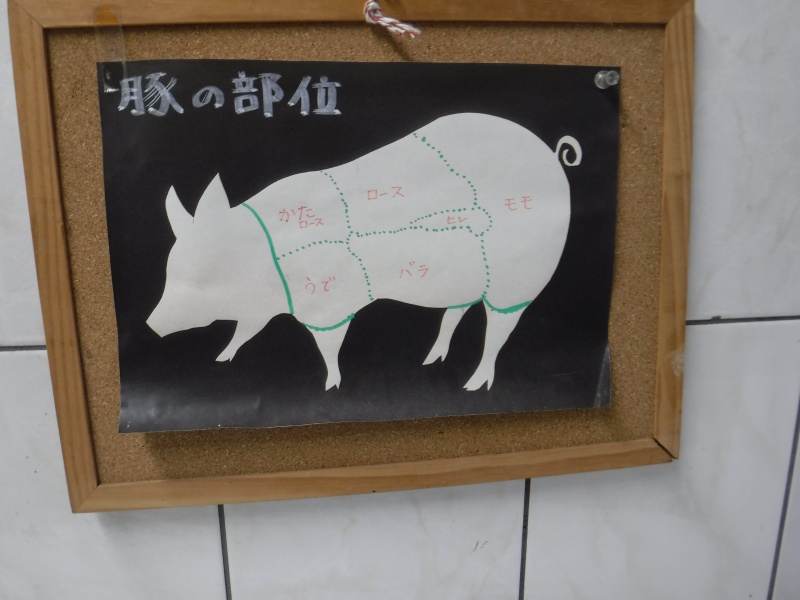 豚の部位
かた
ロース
ロース
ヒレ
モモ
うで
バラ